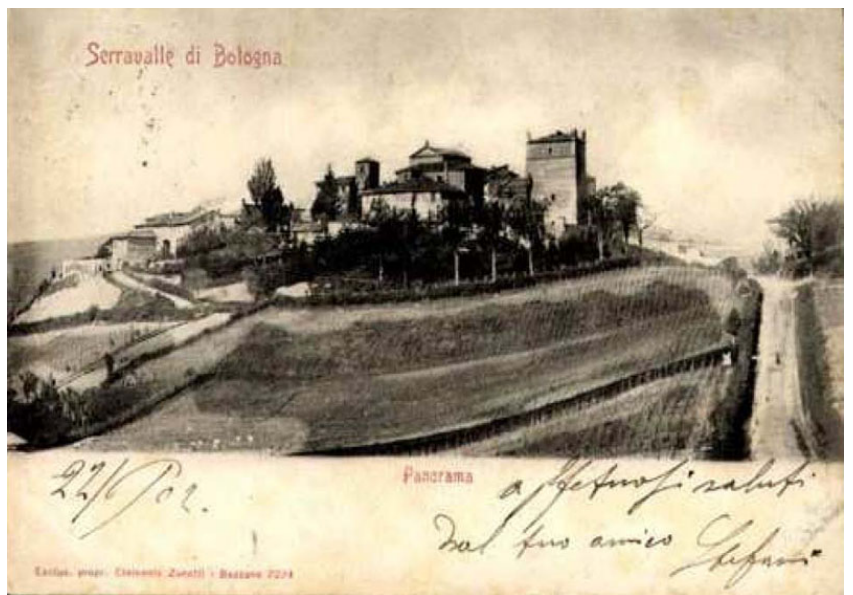 Serravalle di Bologna
Panorama
22/6/02.
affetuosi saluti
Dal tuo amico
Stefani
Esclus. propr. Clemente Zanetti - Bazzano 7224